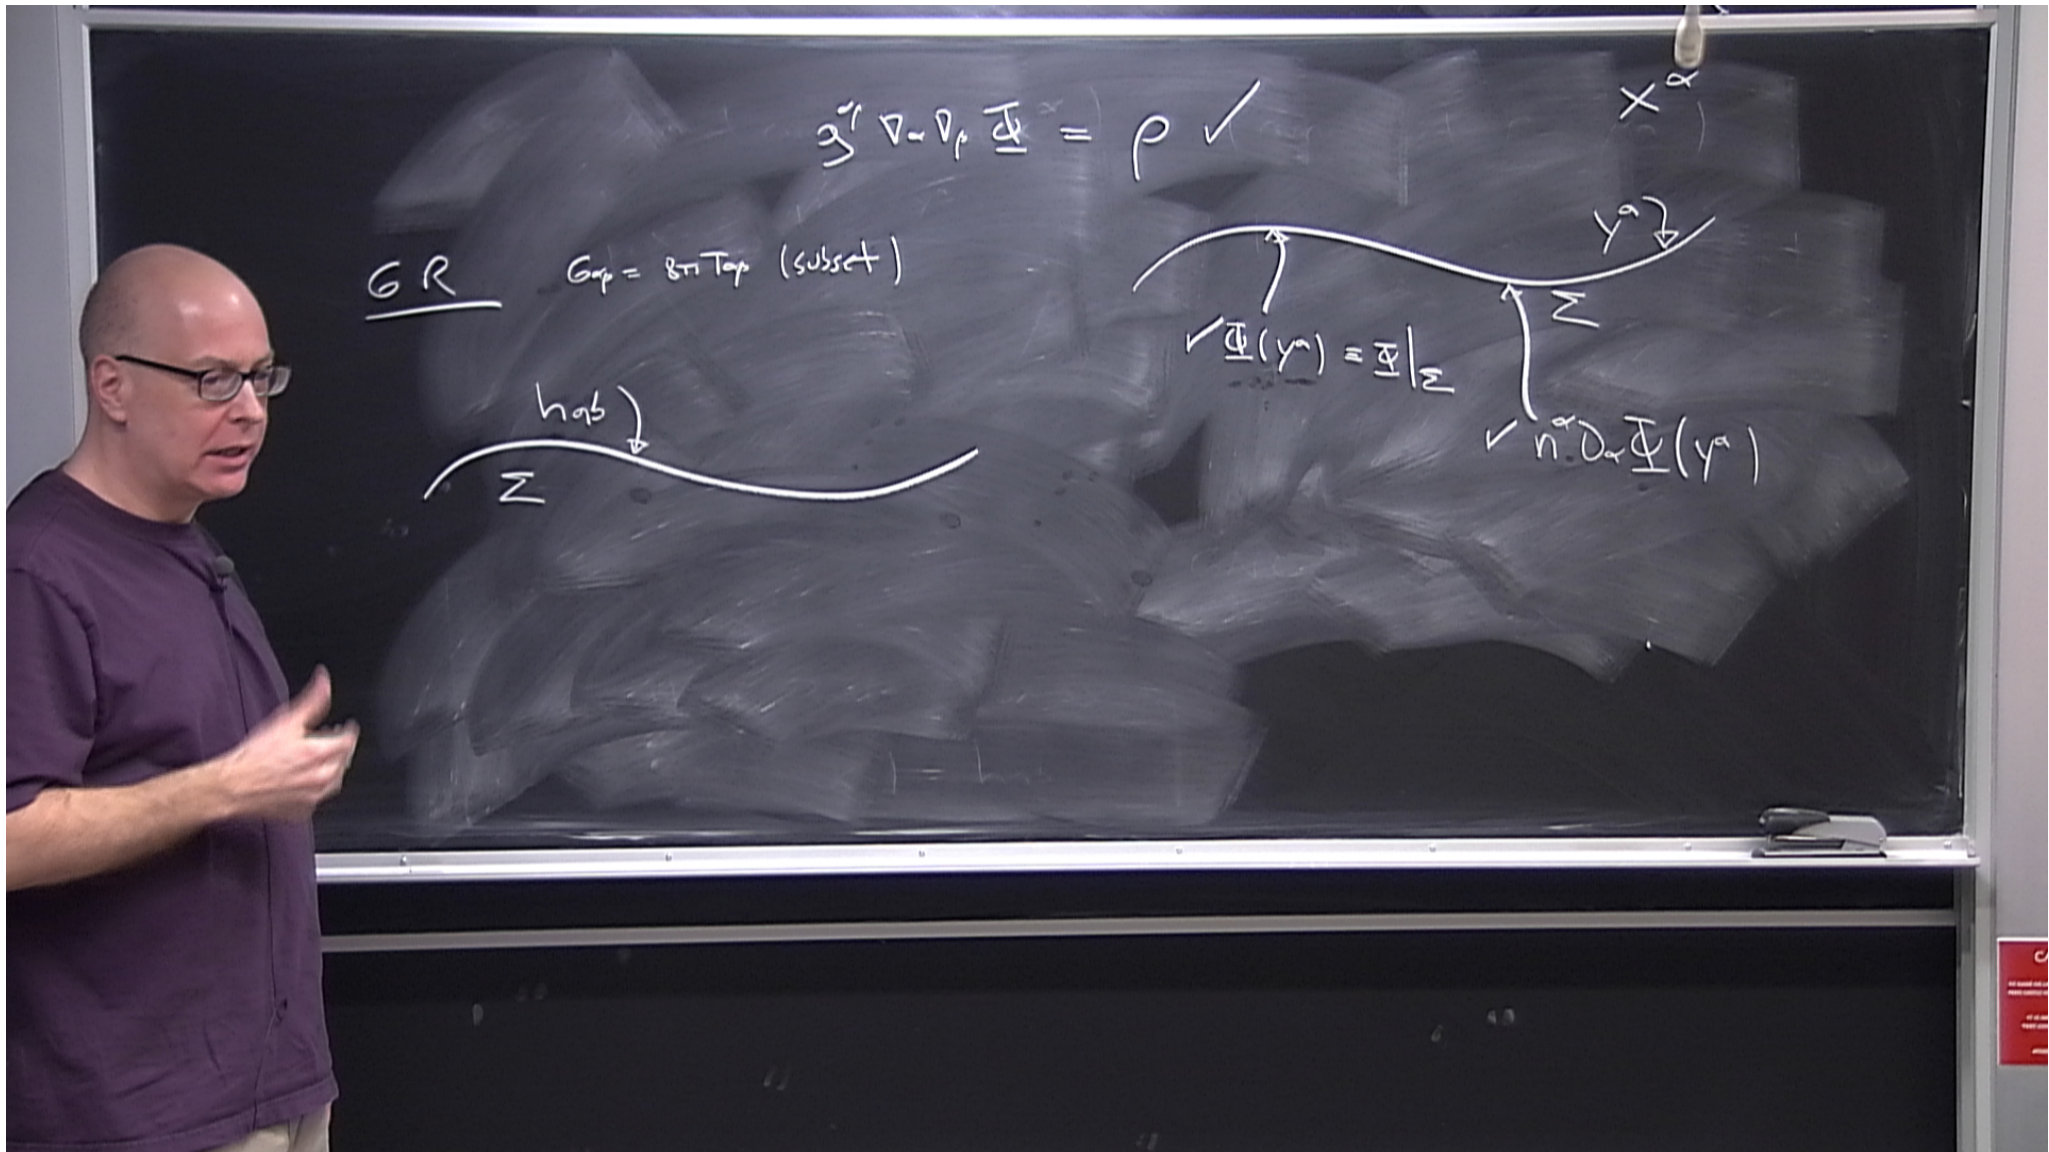 g^{αβ} ∇_α ∇_β Φ = ρ ✓
x^α
y^a
GR G_{αβ} = 8π T_{αβ} (subset)
Σ
✓ Φ(y^a) ≡ Φ|_Σ
h_{ab}
✓ n^α ∂_α Φ(y^a)
Σ